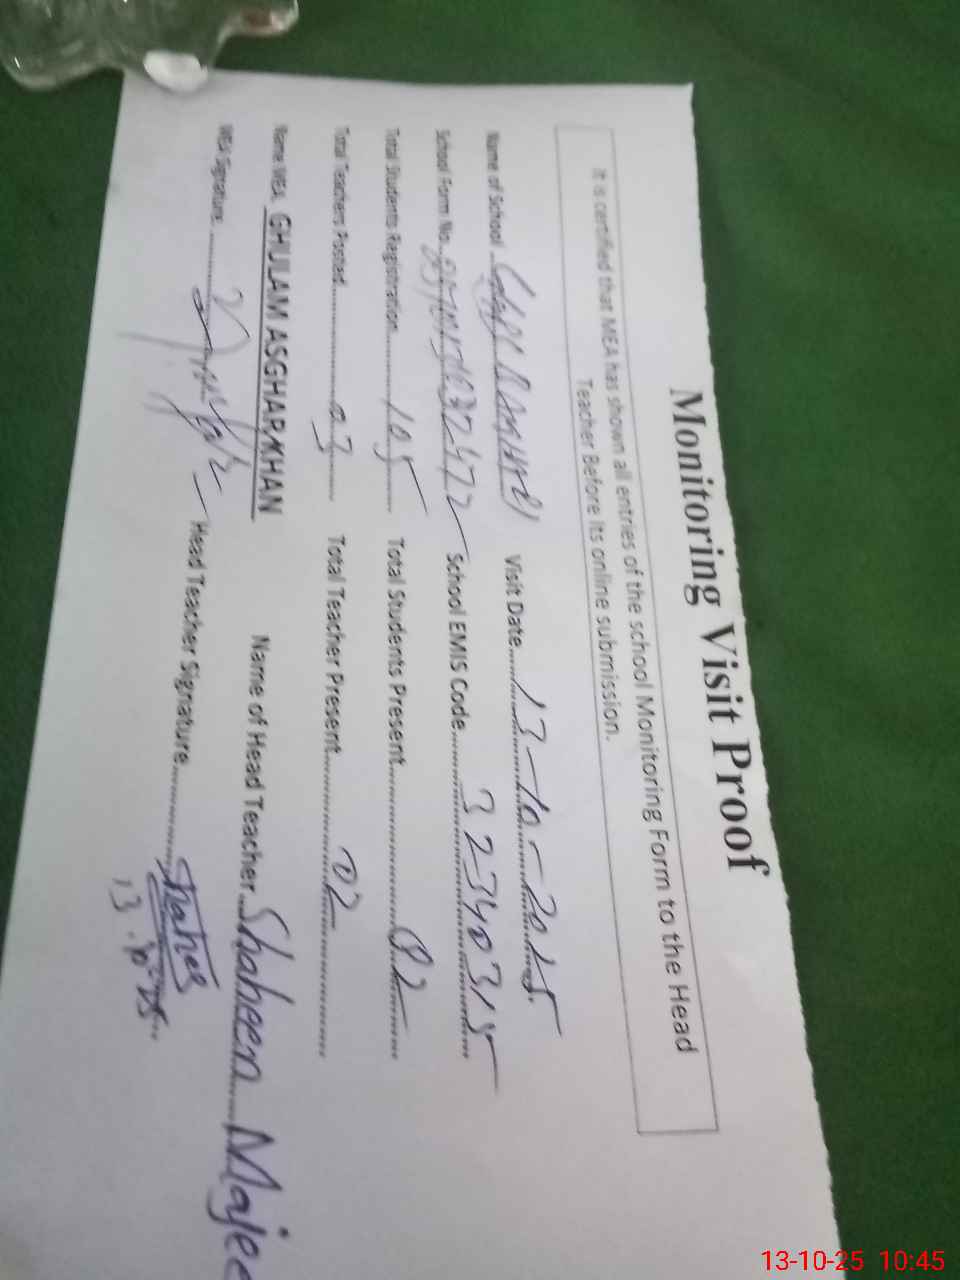 Monitoring Visit Proof
It is certified that MEA has shown all entries of the school Monitoring Form to the Head
Teacher Before its online submission.
Name of School Visit Date 13-10-2025
School Form No. School EMIS Code 32340315
Total Students Registration 105 Total Students Present 82
Total Teachers Posted 03 Total Teacher Present 02
Name MEA GHULAM ASGHAR KHAN Name of Head Teacher Shaheen Majee
MEA Signature Head Teacher Signature
13.10.25
13-10-25 10:45